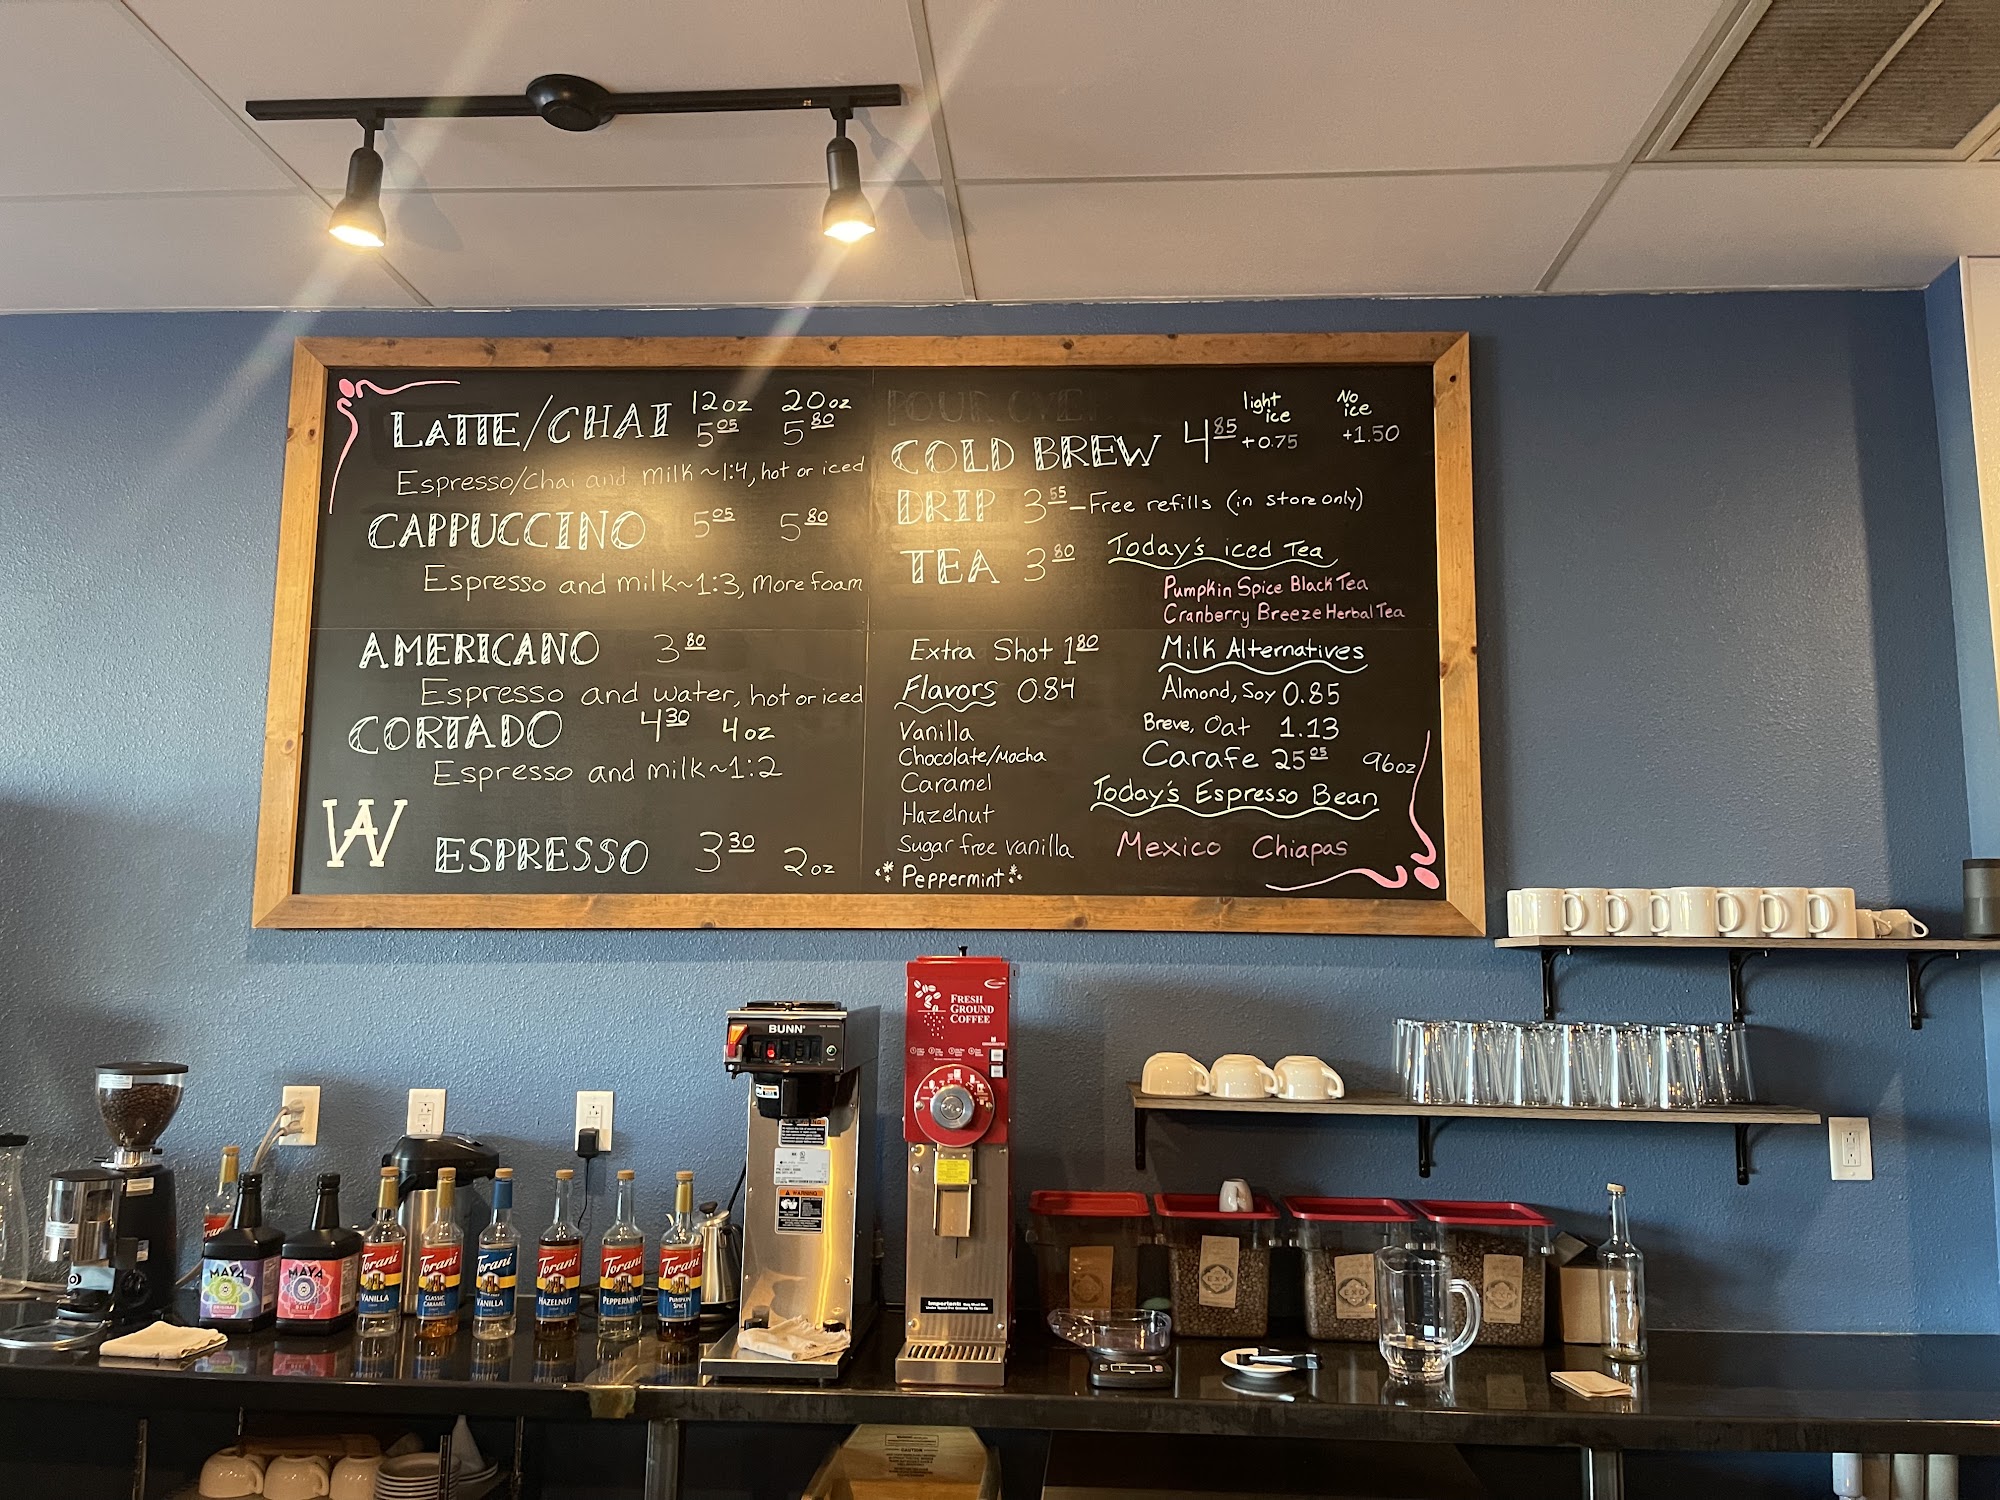 LATTE/CHAI 12oz 5.05 20oz 5.80
Espresso/Chai and milk ~1:4, hot or iced
CAPPUCCINO 5.05 5.80
Espresso and milk ~1:3, More foam
AMERICANO 3.80
Espresso and water, hot or iced
CORTADO 4.30 4oz
Espresso and milk ~1:2
WA
ESPRESSO 3.30 2oz
POUR OVER
COLD BREW 4.85 light ice +0.75 No ice +1.50
DRIP 3.55 - Free refills (in store only)
TEA 3.80
Today's iced Tea
Pumpkin Spice Black Tea
Cranberry Breeze Herbal Tea
Extra Shot 1.80
Flavors 0.84
Vanilla
Chocolate/Mocha
Caramel
Hazelnut
Sugar free vanilla
Peppermint
Milk Alternatives
Almond, Soy 0.85
Breve, Oat 1.13
Carafe 25.05 96oz
Today's Espresso Bean
Mexico Chiapas
BUNN
FRESH
GROUND
COFFEE
WARNING
Important:
MAYA
MAYA
Torani
VANILLA
Torani
CLASSIC
CARAMEL
Torani
VANILLA
Torani
HAZELNUT
Torani
PEPPERMINT
Torani
PUMPKIN
SPICE
EXO
CAUTION